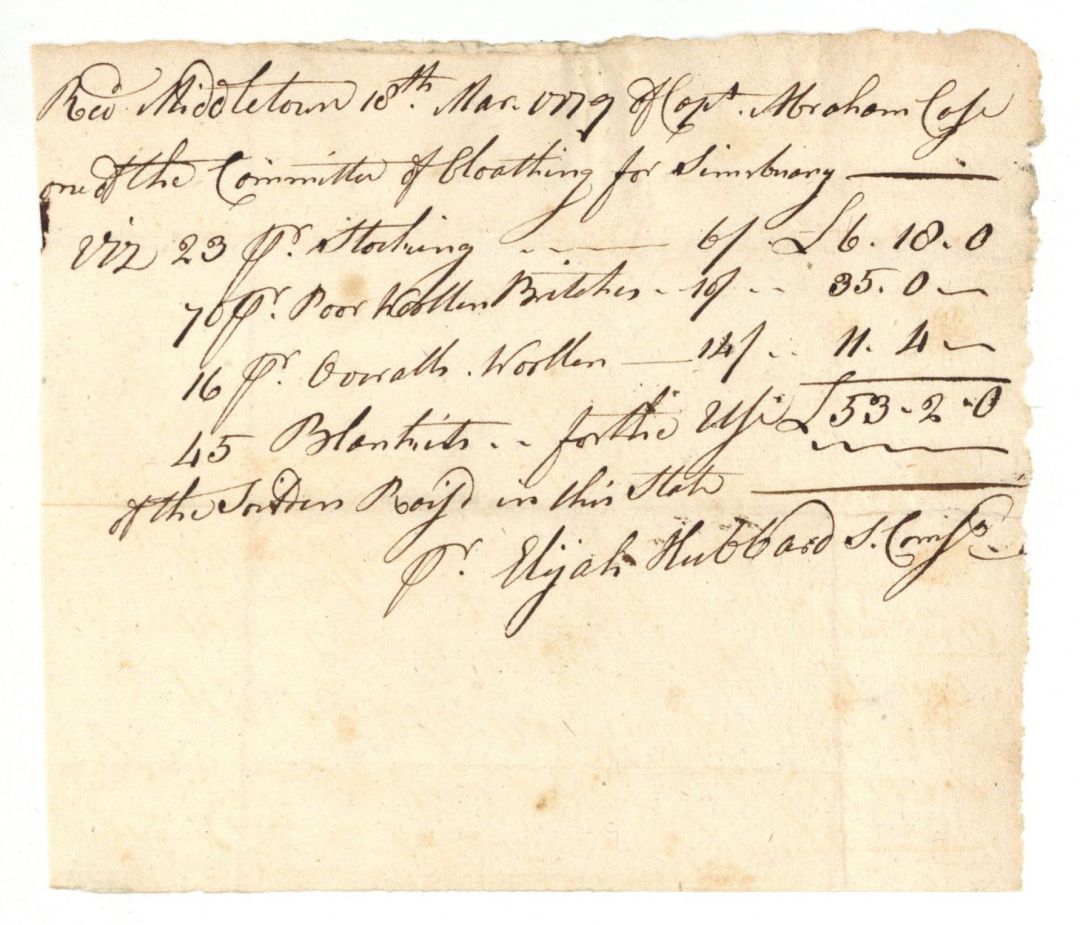 Recd Middletown 18th. Mar. 1779 of Capt. Abraham Case
one of the Committee of Cloathing for Simsbuary
Viz 23 pr. Stocking 6/ £6. 18. 0
70 pr. Poor Woollen Britches 10/ 35. 0
16 pr. Overalls Woollen 14/ 11. 4
45 Blankits for the Use £53. 2. 0
of the Soldiers Rais'd in this State
pr. Elijah Hubbard S. Comsy